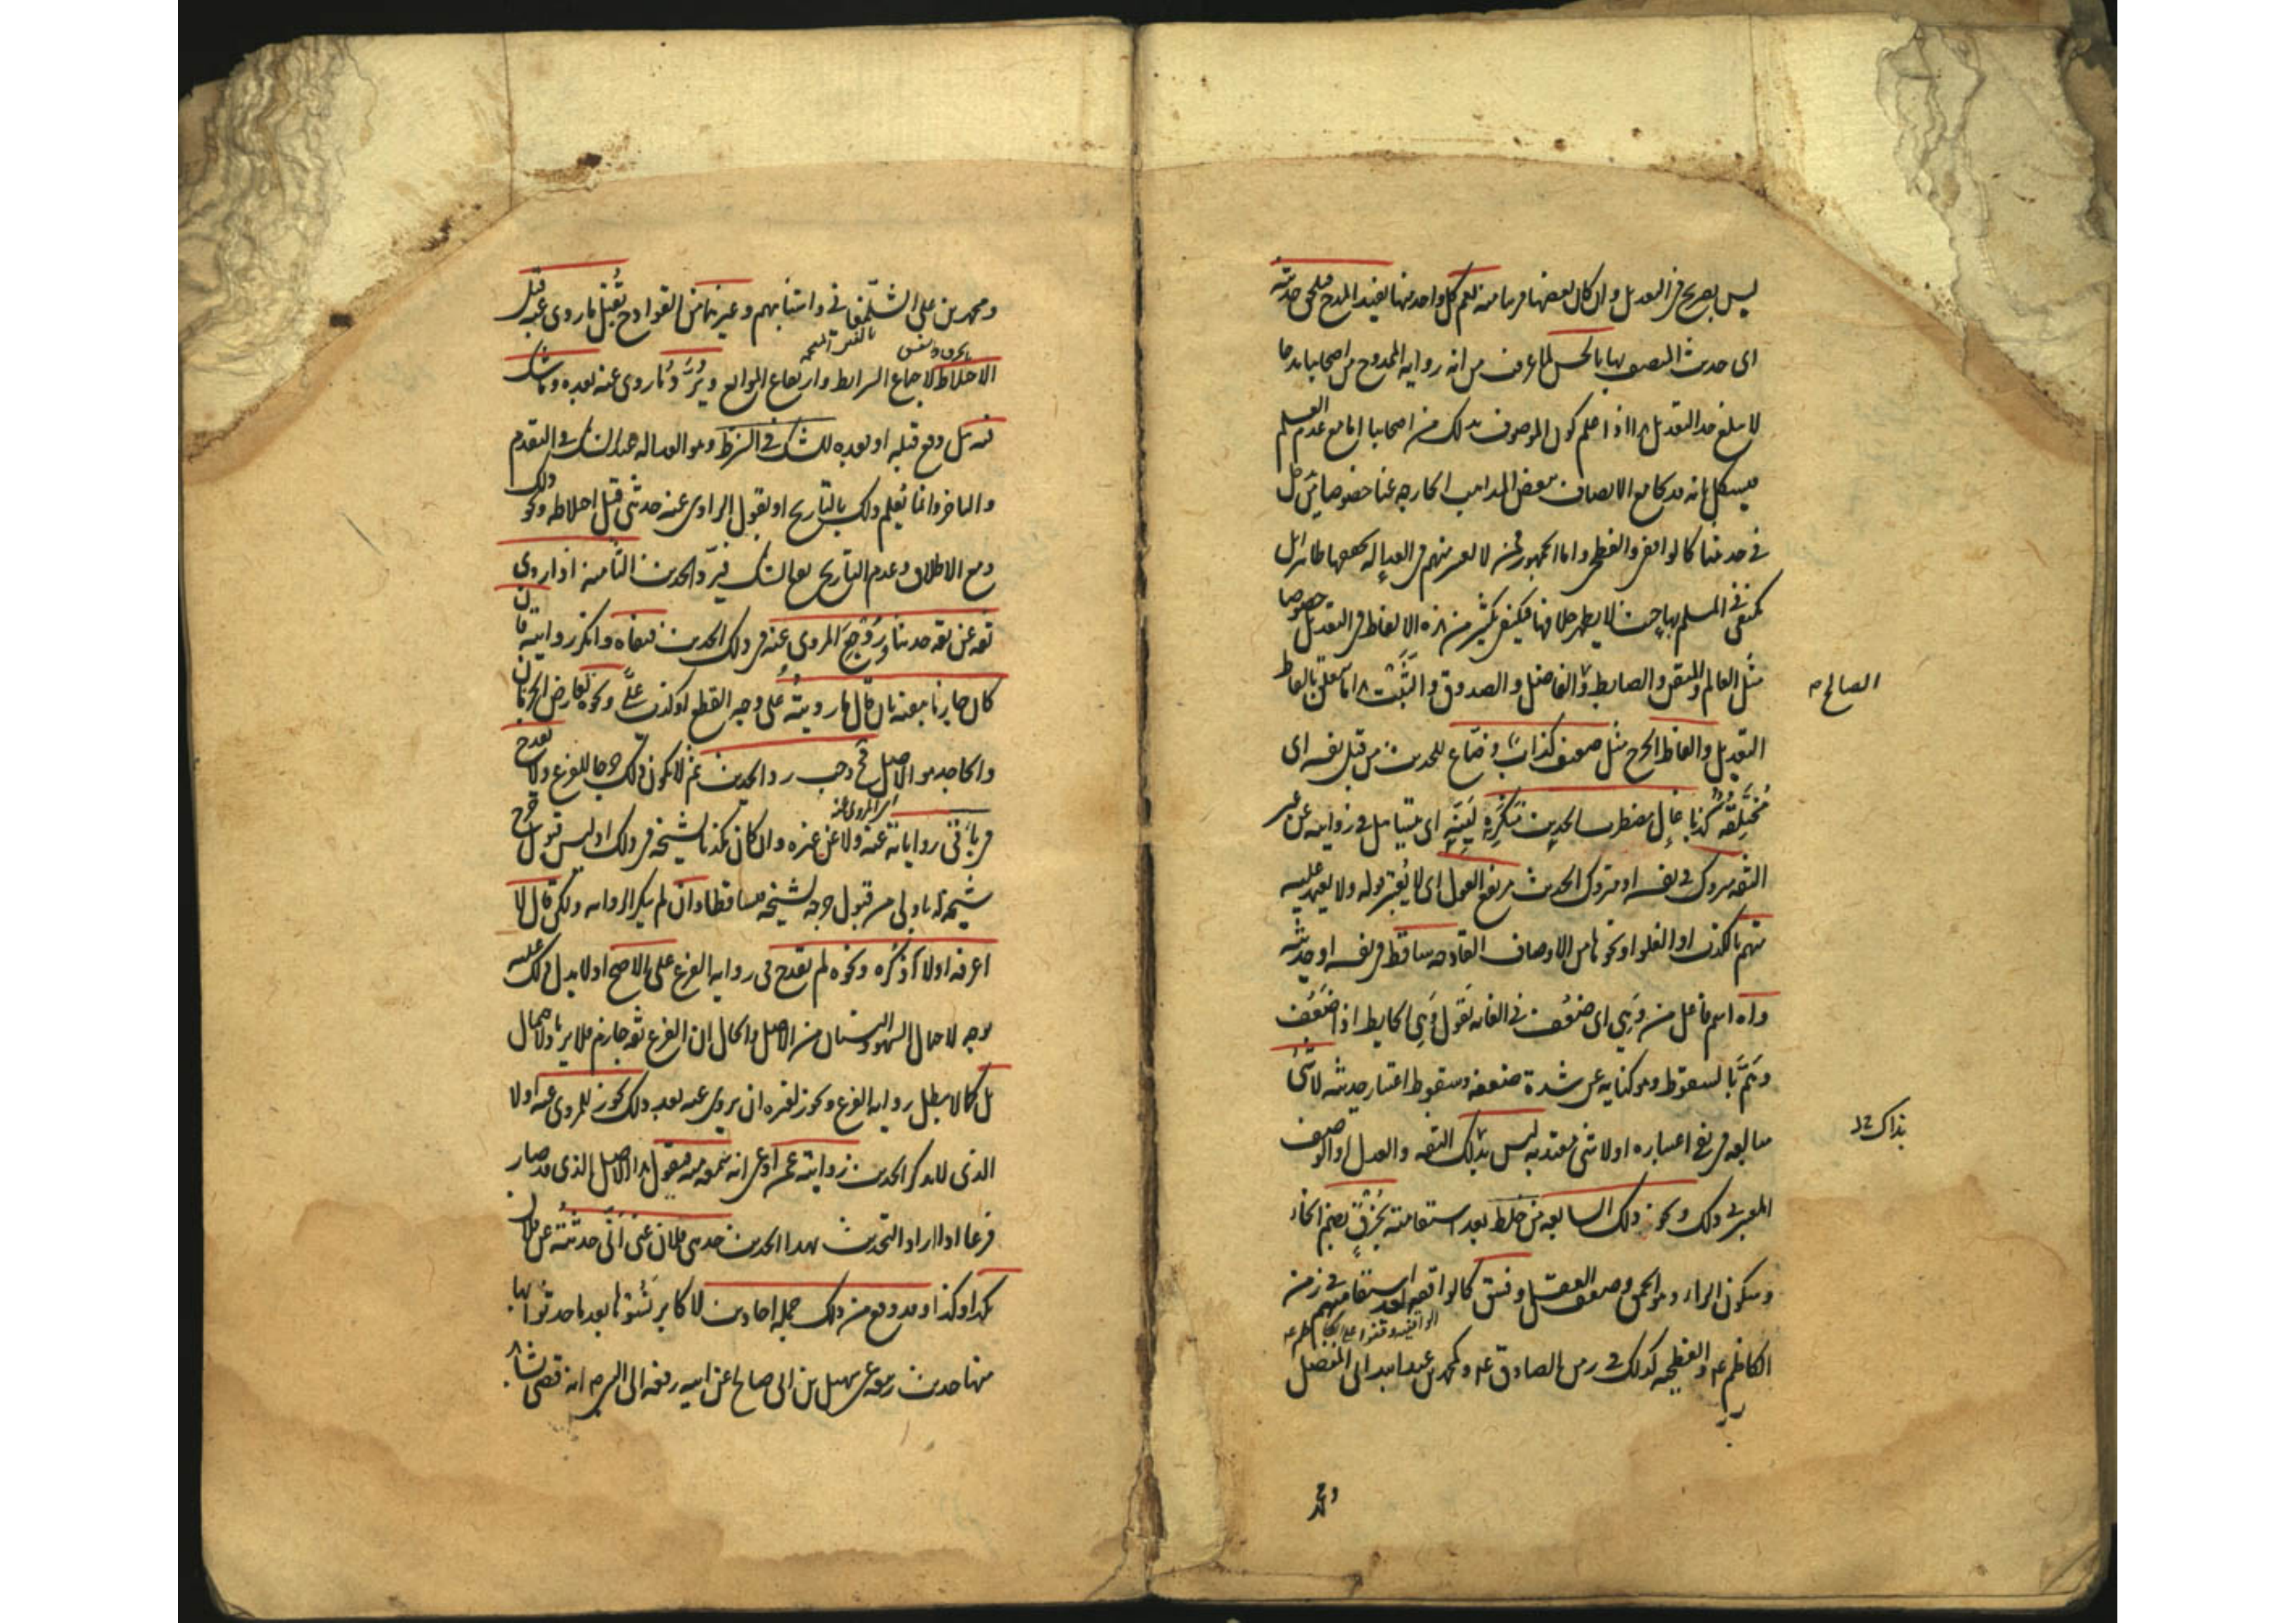 ليس بصريح في التعديل وان كان بعضها قريبا منه نعم كل واحد منها يفيد المدح فيلحق حديثه
اي حديث المتصف بها بالحسن لما عرفت من انه رواية الممدوح من اصحابنا مدحا
لا يبلغ حد التعديل هذا اذا علم كون الموصوف بذلك من اصحابنا اما مع عدم العلم
فيشكل بانه قد يجامع الاتصاف ببعض المذاهب الخارجة عنا خصوصا من يدخل
في حديثنا كالواقفي والفطحي واما الجمهور فمن لا يعتبر منهم في العدالة تحققها ظاهرا بل
يكتفي في المسلم بها حيث لا يظهر خلافها فيكتفي بكثير من هذه الالفاظ في التعديل خصوصا
مثل العالم والمتقن والضابط والفاضل والصدوق والثبت هذا ما يتعلق بالفاظ
الصالح م
التعديل والفاظ الجرح مثل ضعيف كذاب وضاع للحديث من قبل نفسه اي
مختلقه كذبا غال مضطرب الحديث منكره لينه اي يتساهل في روايته عن غير
الثقة متروك في نفسه او متروك الحديث مرتفع القول اي لا يعتبر قوله ولا يعتمد عليه
متهم بالكذب او الغلو او نحوهما من الاوصاف القادحة ساقط في نفسه او حديثه
واه اسم فاعل من وهي اي ضعف في الغاية تقول وهي الحايط اذا ضعف
وهم بالسقوط وهو كناية عن شدة ضعفه وسقوط اعتبار حديثه لا شئ
مبالغة في نفي اعتباره او لا شئ معتد به ليس بذلك الثقة والعدل او الوصف
بذاك خ‌ل
المعتبر في ذلك ونحو ذلك السابعة من خلط بعد استقامته بخرق بضم الخاء
وسكون الراء وهو الحمق وضعف العقل او فسق كالواقفة بعد استقامتهم في زمن
الواقفية وقفوا على الكاظم ع
الكاظم ع والفطحية كذلك في زمن الصادق ع ومحمد بن عبد الله ابي المفضل
ومحمد
ومحمد بن علي الشلمغاني واشباههم وغيرهما من القوادح يقبل ما روى عنه قبل
بالخرق والفسق
الاختلاط لاجتماع الشرايط وارتفاع الموانع ويرد ما روى عنه بعده وما شك
فيه هل وقع قبله او بعده للشك في الشرط وهو العدالة عند الشك في التقدم
والتاخر وانما يعلم ذلك بالتاريخ او بقول الراوي عنه حدثني قبل اختلاطه ونحو ذلك
ومع الاطلاق وعدم التاريخ يقع الشك فيرد الحديث الثامنة اذا روى
ثقة عن ثقة حديثا وروجع المروي عنه في ذلك الحديث فنفاه وانكر روايته فان
كان جازما بنفيه بان قال ما رويته على وجه القطع او كذب علي ونحوه تعارض الجزمان
والجاحد هو الاصل فح وجب رد الحديث ثم لا يكون ذلك جرحا للفرع ولا يقدح
اي المروي عنه
في باقي رواياته عنه ولا عن غيره وان كان مكذبا لشيخه في ذلك اذ ليس قبول جرح
شيخه له باولى من قبول جرحه لشيخه فتساقطا وان لم ينكر الرواية ولكن قال لا
اعرفه او لا اذكره ونحوه لم يقدح في رواية الفرع على الاصح اذ لا يدل ذلك عليه
بوجه لاحتمال السهو والنسيان من الاصل والحال ان الفرع ثقة جازم فلا يرد بالاحتمال
بل كما لا يبطل رواية الفرع ويجوز لغيره ان يروي عنه بعد ذلك يجوز للمروي عنه اولا
الذي لا يذكر الحديث روايته عمن ادعى انه سمعه منه فيقول هذا الاصل الذي قد صار
فرعا اذا اراد التحديث بهذا الحديث حدثني فلان عني اني حدثته عن فلان
بكذا وكذا وقد وقع من ذلك جملة احاديث لاكابر نسوها بعد ما حدثوا بها
منها حديث ربيعة عن سهيل بن ابي صالح عن ابيه رفعه الى النبي ص انه قضى بشا